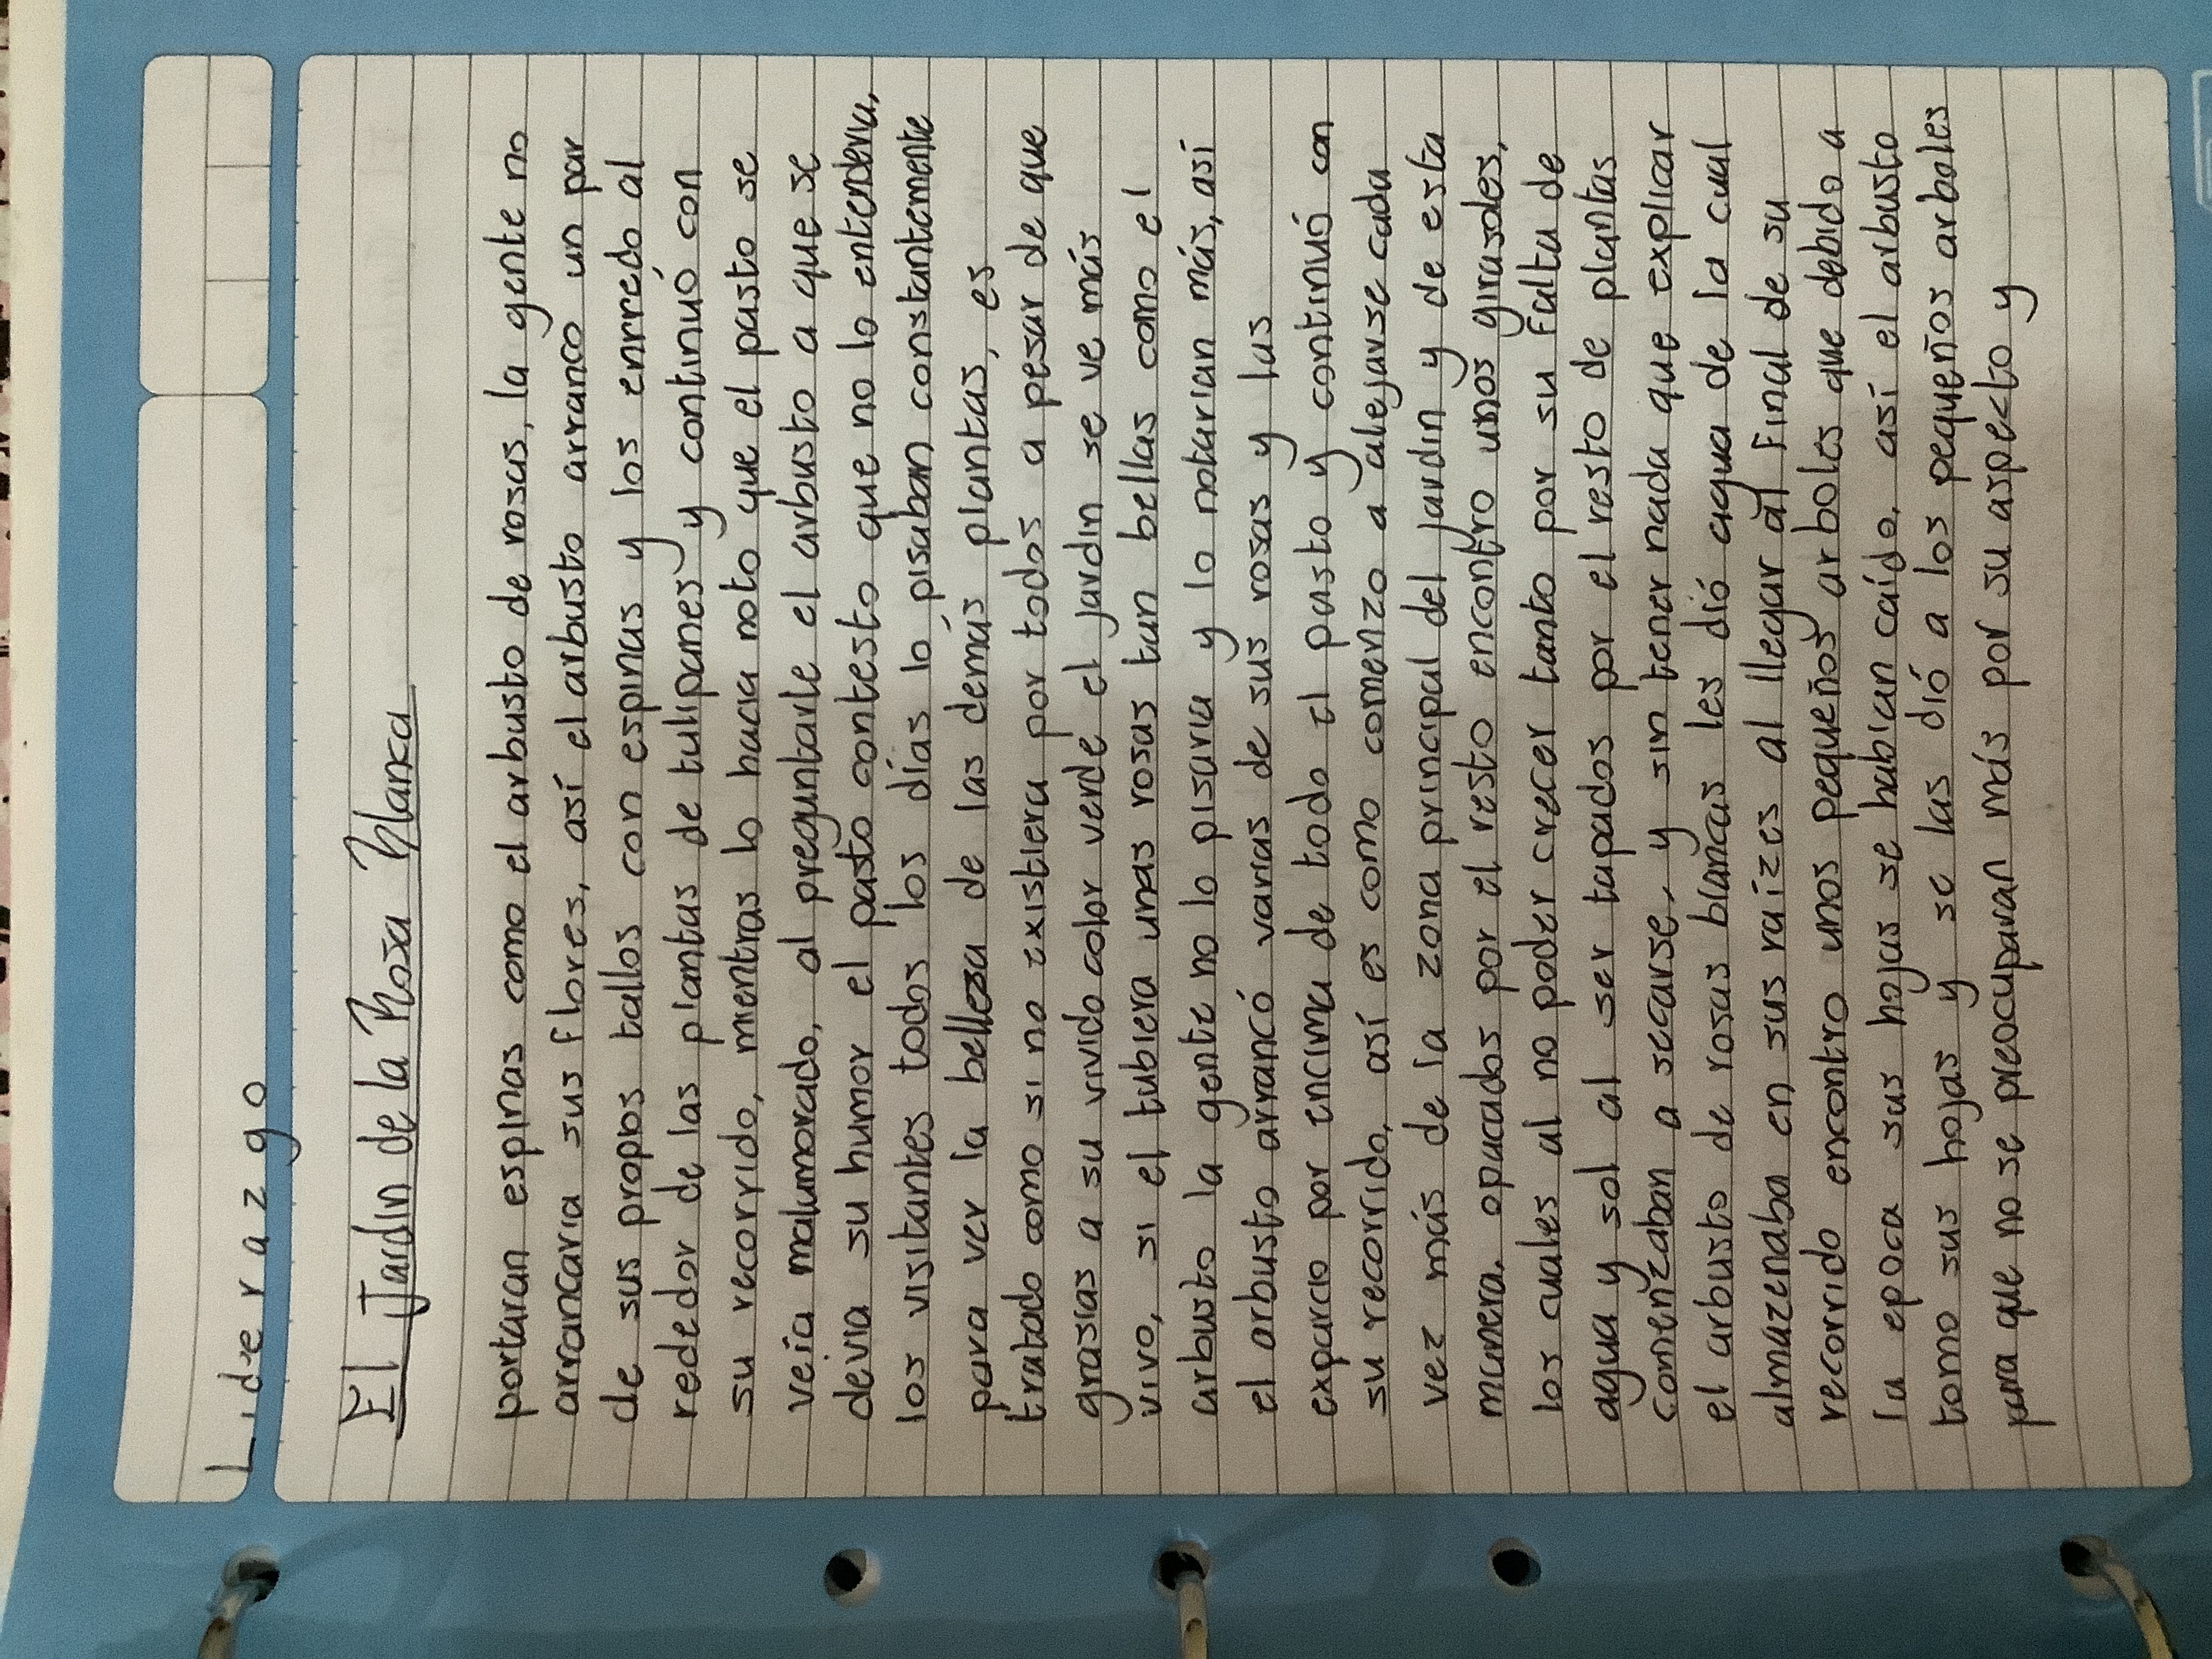 Liderazgo
El Jardin de la Rosa Blanca
portaran espinas como el arbusto de rosas, la gente no
arrancaria sus flores, así el arbusto arranco un par
de sus propios tallos con espinas y los enrredo al
rededor de las plantas de tulipanes y continuó con
su recorrido, mientras lo hacia noto que el pasto se
veia malumorado, al preguntarle el arbusto a que se
devia su humor el pasto contesto que no lo entenderia,
los visitantes todos los días lo pisaban constantemente
para ver la belleza de las demás plantas, es
tratado como si no existiera por todos a pesar de que
grasias a su vivido color verde el jardin se ve más
vivo, si el tubiera unas rosas tan bellas como el
arbusto la gente no lo pisaria y lo notarian más, así
el arbusto arrancó varias de sus rosas y las
exparcio por encima de todo el pasto y continuó con
su recorrido, así es como comenzo a alejarse cada
vez más de la zona principal del jardin y de esta
manera, opacados por el resto encontro unos girasoles,
los cuales al no poder crecer tanto por su falta de
agua y sol al ser tapados por el resto de plantas
comenzaban a secarse, y sin tener nada que explicar
el arbusto de rosas blancas les dió agua de la cual
almazenaba en sus raízes al llegar al final de su
recorrido encontro unos pequeños arboles que debido a
la epoca sus hojas se habian caído, así el arbusto
tomo sus hojas y se las dió a los pequeños arboles
para que no se preocuparan más por su aspecto y